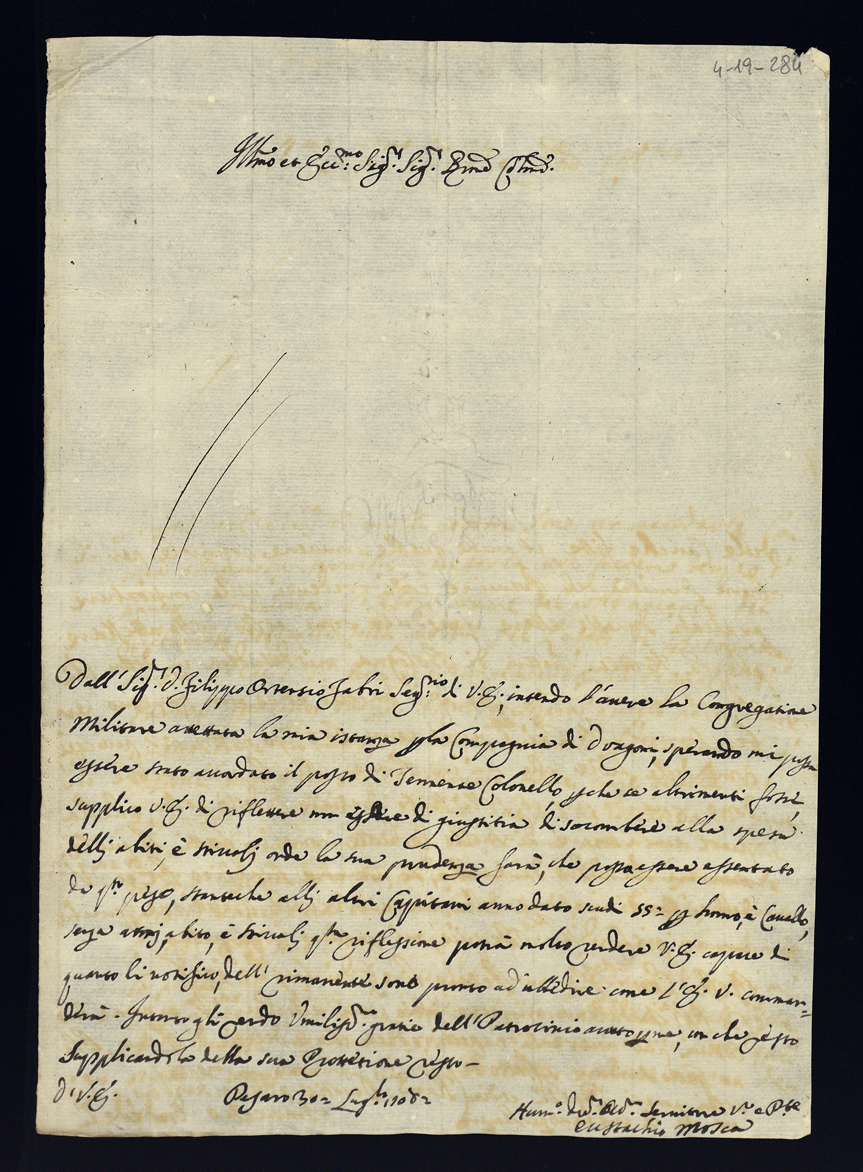 4-19-284
Illmo et Ecc:mo Sig.r Sig.r
Dall' Sig.r D. Filippo Ortensio Fabri Seg:rio di V.E., intendo l'avere la Congregatione
Militare accettata la mia istanza la Compagnia di Dragoni, sperando mi possa
essere stato accordato il posto di Tennente Colonello, che se altrimenti fosse,
supplico V.E. di riflettere non essere di giustitia di socombere alla spesa
delli abiti, è stivali onde la sua prudenza farà, che possa essere essentato
da q.to peso, stanteche alli altri Capitani anno dato scudi 55= homo, è Cavallo,
senza armi, abito, è stivali q.ta riflessione potrà molto rendere V.E. capace di
quanto li notifico, dell' rimanente sono pronto ad'ubbedire come l'E. V. comman-
derà. Intanto gli rendo Umiliss.e gratie dell' Patrocinio me, con che resto
Supplicandola della sua Prottetione resto-
D'V.E. Pesaro 30= Lug.o 1708=
Hum.o Servitore V.o e P.te
Eustachio Mosca